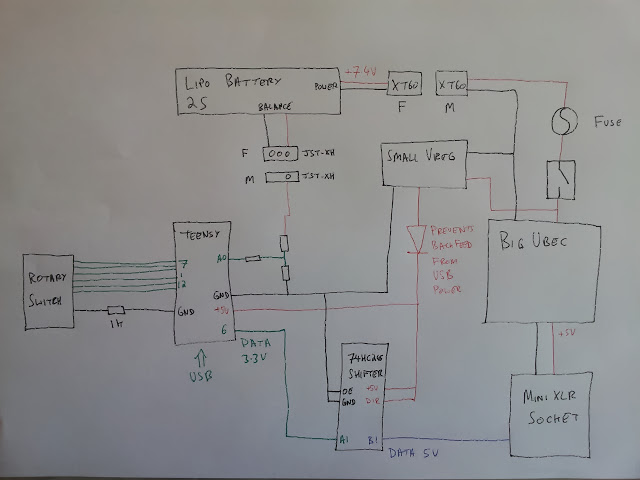 LIPO BATTERY
2S
POWER
BALANCE
+7.4V
XT60
F
XT60
M
FUSE
F
JST-XH
M
JST-XH
SMALL VREG
PREVENTS
BACKFEED
FROM
USB
POWER
BIG UBEC
+5V
MINI XLR
SOCKET
TEENSY
A0
7
12
GND
+5V
GND
6
ROTARY
SWITCH
1K
USB
DATA
3.3V
SHIFTER
OE
GND
+5V
DIR
A1
B1
DATA 5V